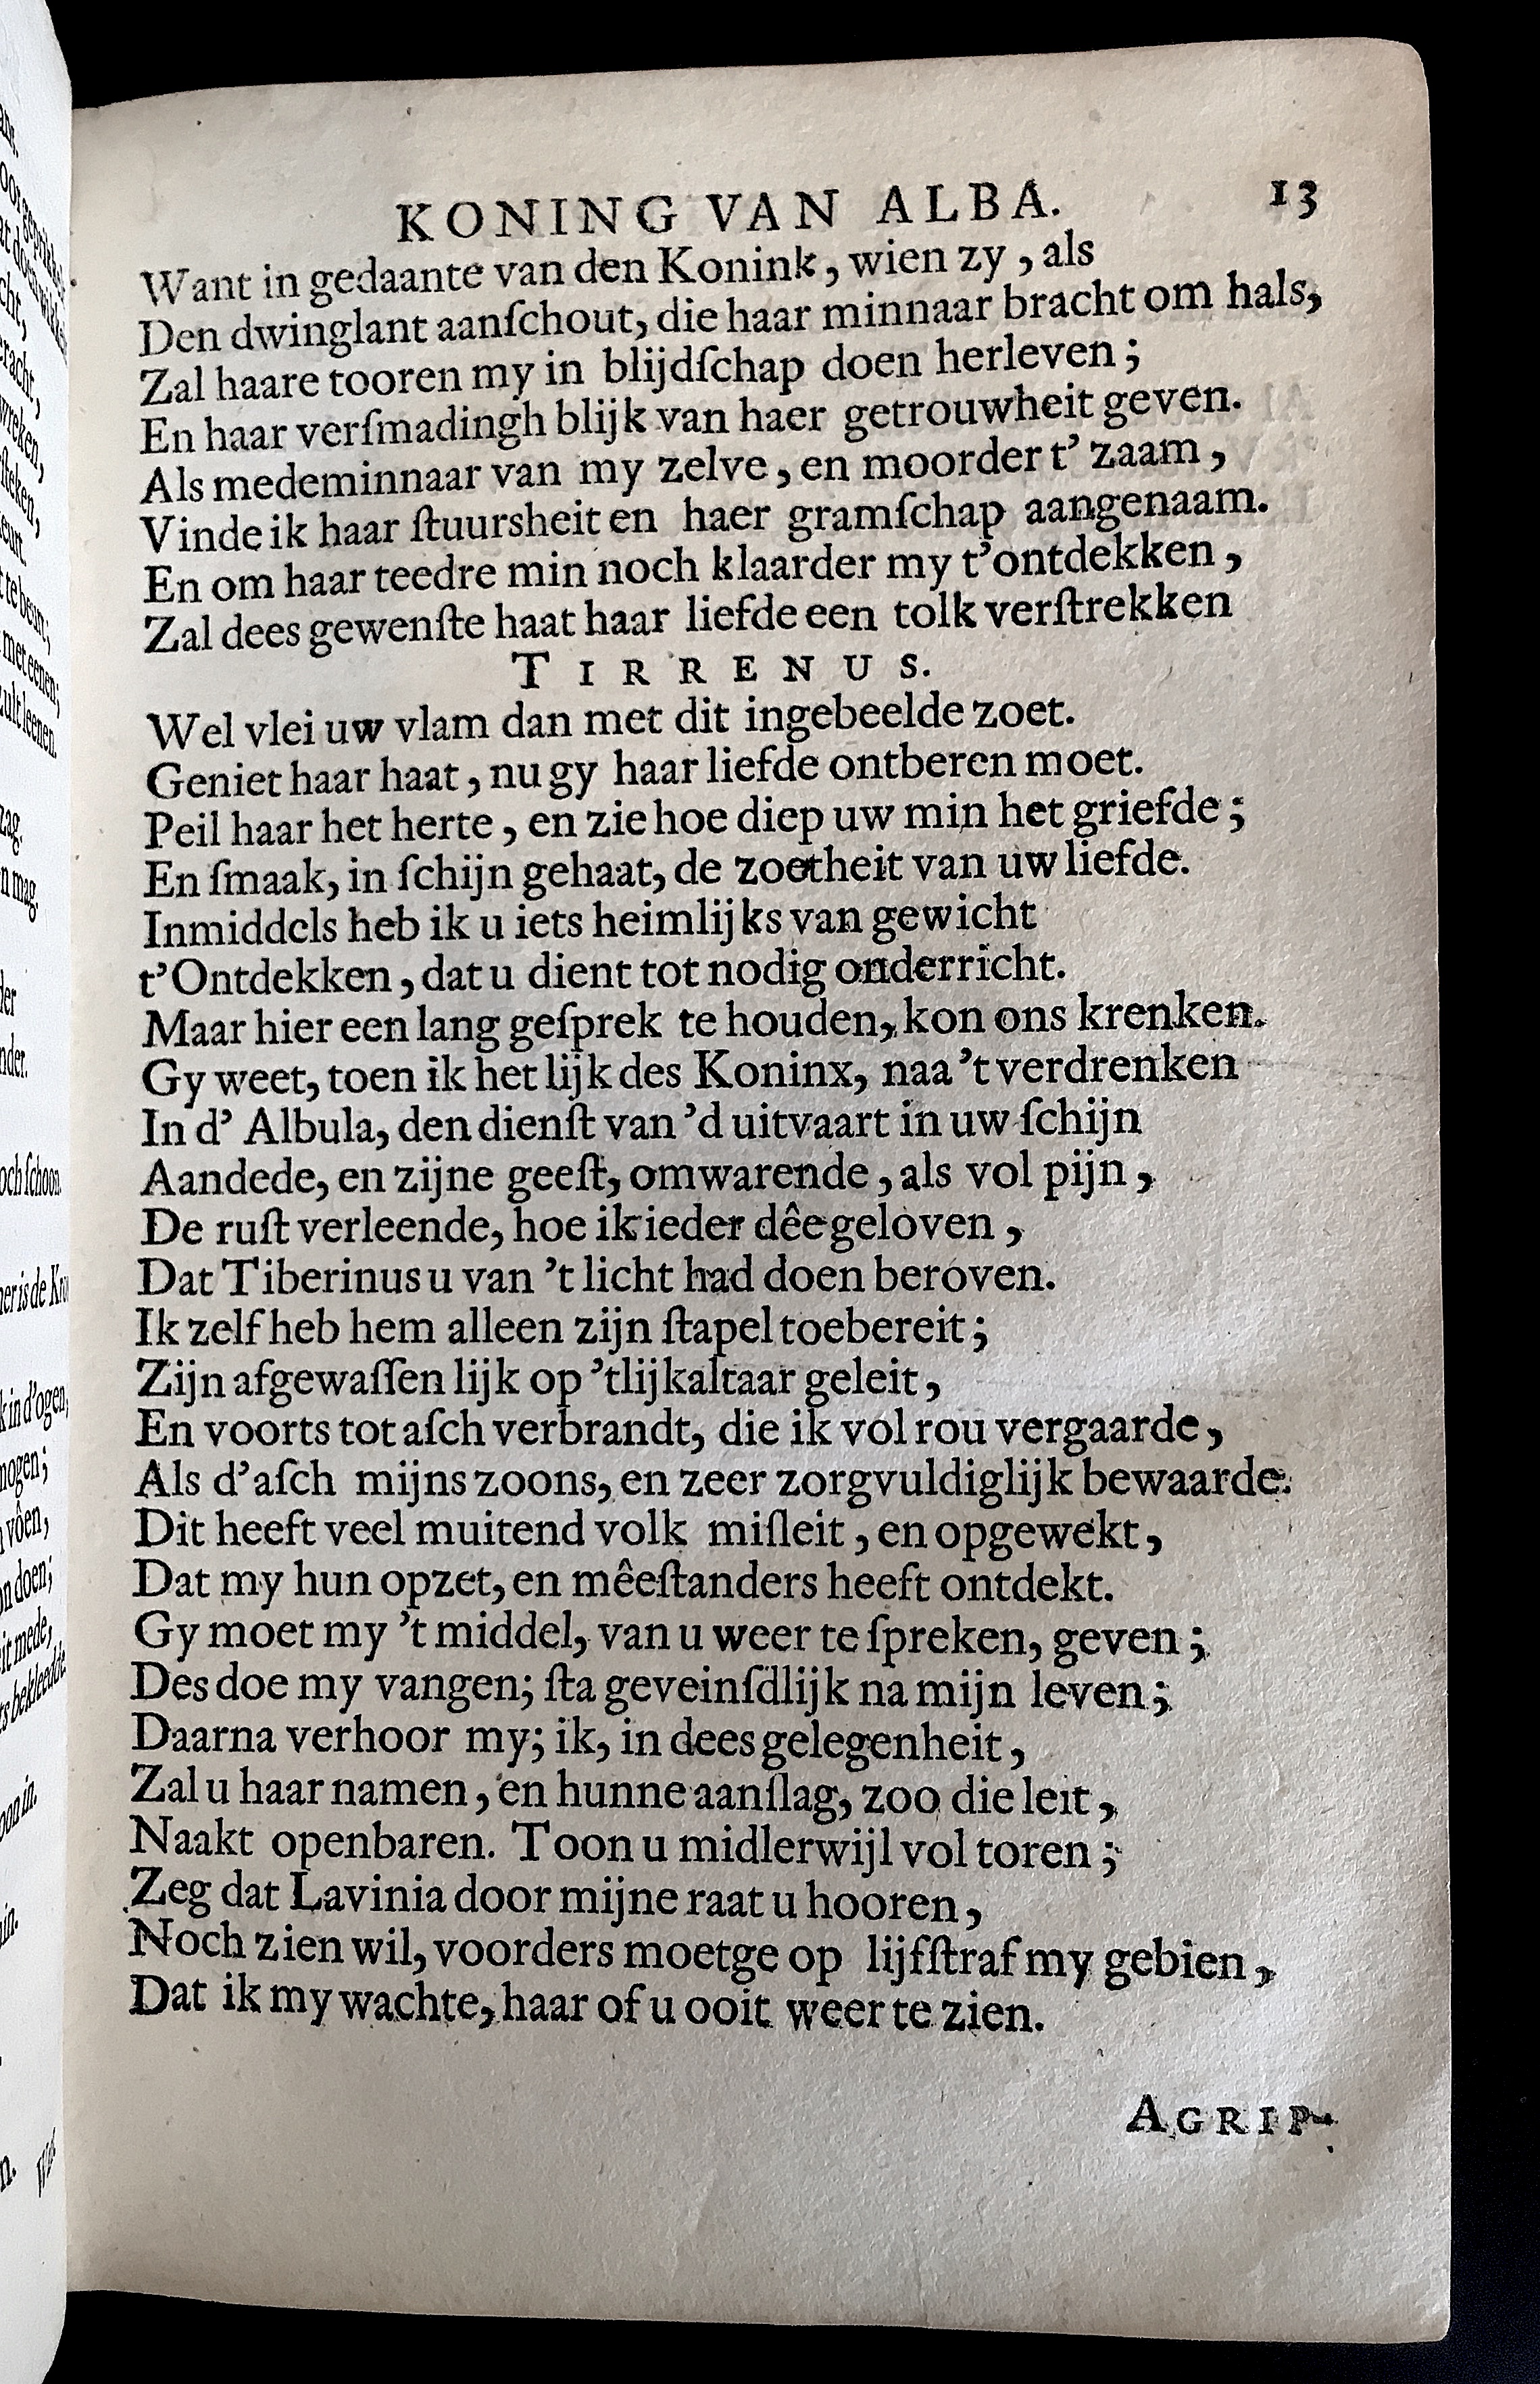 KONING VAN ALBA. 13
Want in gedaante van den Konink, wien zy, als
Den dwinglant aanſchout, die haar minnaar bracht om hals,
Zal haare tooren my in blijdſchap doen herleven;
En haar verſmadingh blijk van haer getrouwheit geven.
Als medeminnaar van my zelve, en moorder t' zaam,
Vinde ik haar ſtuursheit en haer gramſchap aangenaam.
En om haar teedre min noch klaarder my t'ontdekken,
Zal dees gewenſte haat haar liefde een tolk verſtrekken
TIRRENUS.
Wel vlei uw vlam dan met dit ingebeelde zoet.
Geniet haar haat, nu gy haar liefde ontberen moet.
Peil haar het herte, en zie hoe diep uw min het griefde;
En ſmaak, in ſchijn gehaat, de zoetheit van uw liefde.
Inmiddels heb ik u iets heimlijks van gewicht
t'Ontdekken, dat u dient tot nodig onderricht.
Maar hier een lang geſprek te houden, kon ons krenken.
Gy weet, toen ik het lijk des Koninx, naa 't verdrenken
In d' Albula, den dienſt van 'd uitvaart in uw ſchijn
Aandede, en zijne geeſt, omwarende, als vol pijn,
De ruſt verleende, hoe ik ieder dêe geloven,
Dat Tiberinus u van 't licht had doen beroven.
Ik zelf heb hem alleen zijn ſtapel toebereit;
Zijn afgewaſſen lijk op 'tlijkaltaar geleit,
En voorts tot aſch verbrandt, die ik vol rou vergaarde,
Als d'aſch mijns zoons, en zeer zorgvuldiglijk bewaarde.
Dit heeft veel muitend volk miſleit, en opgewekt,
Dat my hun opzet, en mêeſtanders heeft ontdekt.
Gy moet my 't middel, van u weer te ſpreken, geven;
Des doe my vangen; ſta geveinſdlijk na mijn leven;
Daarna verhoor my; ik, in dees gelegenheit,
Zal u haar namen, en hunne aanſlag, zoo die leit,
Naakt openbaren. Toon u midlerwijl vol toren;
Zeg dat Lavinia door mijne raat u hooren,
Noch zien wil, voorders moetge op lijfſtraf my gebien,
Dat ik my wachte, haar of u ooit weer te zien.
AGRIP-